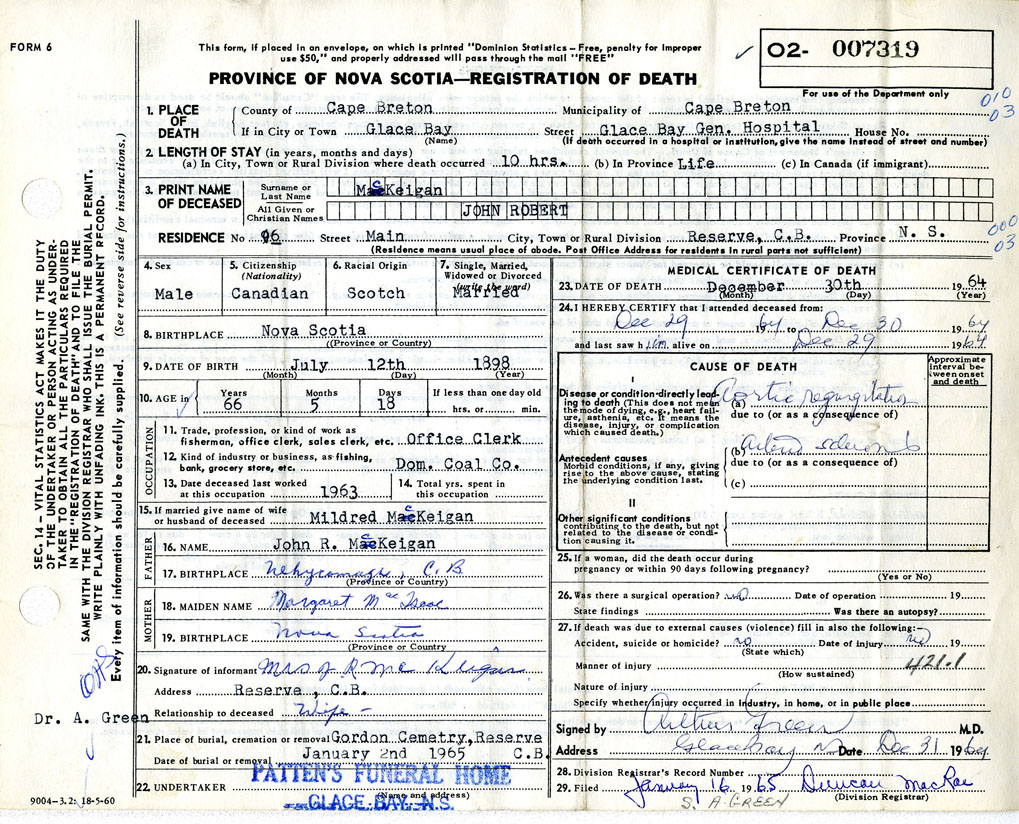 FORM 6
This form, if placed in an envelope, on which is printed "Dominion Statistics—Free, penalty for improper
use $50," and properly addressed will pass through the mail "FREE"
PROVINCE OF NOVA SCOTIA—REGISTRATION OF DEATH
02- 007319
For use of the Department only
010
03
1. PLACE OF DEATH
County of Cape Breton Municipality of Cape Breton
If in City or Town Glace Bay Street Glace Bay Gen. Hospital House No.
(Name) (If death occurred in a hospital or institution, give the name instead of street and number)
2. LENGTH OF STAY (in years, months and days)
(a) In City, Town or Rural Division where death occurred 10 hrs. (b) In Province Life (c) In Canada (if immigrant)
3. PRINT NAME OF DECEASED
Surname or Last Name MacKeigan
All Given or Christian Names JOHN ROBERT
000
03
RESIDENCE No 96 Street Main City, Town or Rural Division Reserve, C.B. Province N. S.
(Residence means usual place of abode. Post Office Address for residents in rural parts not sufficient)
4. Sex
Male
5. Citizenship
(Nationality)
Canadian
6. Racial Origin
Scotch
7. Single, Married,
Widowed or Divorced
(write the word)
Married
8. BIRTHPLACE Nova Scotia
(Province or Country)
9. DATE OF BIRTH July 12th 1898
(Month) (Day) (Year)
10. AGE in
Years Months Days If less than one day old
66 5 18 hrs. or min.
OCCUPATION
11. Trade, profession, or kind of work as
fisherman, office clerk, sales clerk, etc. Office Clerk
12. Kind of industry or business, as fishing,
bank, grocery store, etc. Dom. Coal Co.
13. Date deceased last worked
at this occupation 1963
14. Total yrs. spent in
this occupation
15. If married give name of wife
or husband of deceased Mildred MacKeigan
FATHER
16. NAME John R. MacKeigan
17. BIRTHPLACE C. B.
(Province or Country)
MOTHER
18. MAIDEN NAME Margaret Mac Isaac
19. BIRTHPLACE Nova Scotia
(Province or Country)
20. Signature of informant Mrs J R Mc Keigan
Address Reserve, C.B.
Relationship to deceased Wife -
21. Place of burial, cremation or removal Gordon Cemetry, Reserve
C.B.
Date of burial or removal January 2nd 1965
22. UNDERTAKER PATTEN'S FUNERAL HOME
(Name and address)
GLACE BAY, N.S.
MEDICAL CERTIFICATE OF DEATH
23. DATE OF DEATH December 30th 1964
(Month) (Day) (Year)
24. I HEREBY CERTIFY that I attended deceased from:
Dec 29 1964 to Dec 30 1964
and last saw him alive on Dec 29 1964
CAUSE OF DEATH
Approximate
interval be-
tween onset
and death
I
Disease or condition directly lead-
ing to death (This does not mean
the mode of dying, e.g., heart fail-
ure, asthenia, etc. It means the
disease, injury, or complication
which caused death.)
(a) Aortic regurgitation
due to (or as a consequence of)
Antecedent causes
Morbid conditions, if any, giving
rise to the above cause, stating
the underlying condition last.
(b)
due to (or as a consequence of)
(c)
II
Other significant conditions
contributing to the death, but not
related to the disease or condi-
tion causing it.
25. If a woman, did the death occur during
pregnancy or within 90 days following pregnancy?
(Yes or No)
26. Was there a surgical operation? no Date of operation 19
State findings Was there an autopsy?
27. If death was due to external causes (violence) fill in also the following:—
Accident, suicide or homicide? no Date of injury 19
(State which)
Manner of injury 421.1
(How sustained)
Nature of injury
Specify whether injury occurred in industry, in home, or in public place
Signed by Arthur Green M.D.
Address Glace Bay NS Date Dec 31 1964
28. Division Registrar's Record Number
29. Filed January 16 1965 Duncan MacRae
(Division Registrar)
S. A. GREEN
SEC. 14 — VITAL STATISTICS ACT MAKES IT THE DUTY
OF THE UNDERTAKER OR PERSON ACTING AS UNDER-
TAKER TO OBTAIN ALL THE PARTICULARS REQUIRED
IN THE "REGISTRATION OF DEATH" AND TO FILE THE
SAME WITH THE DIVISION REGISTRAR WHO SHALL ISSUE THE BURIAL PERMIT.
WRITE PLAINLY WITH UNFADING INK. THIS IS A PERMANENT RECORD.
Every item of information should be carefully supplied. (See reverse side for instructions.)
Dr. A. Green
9004-3.2: 18-5-60